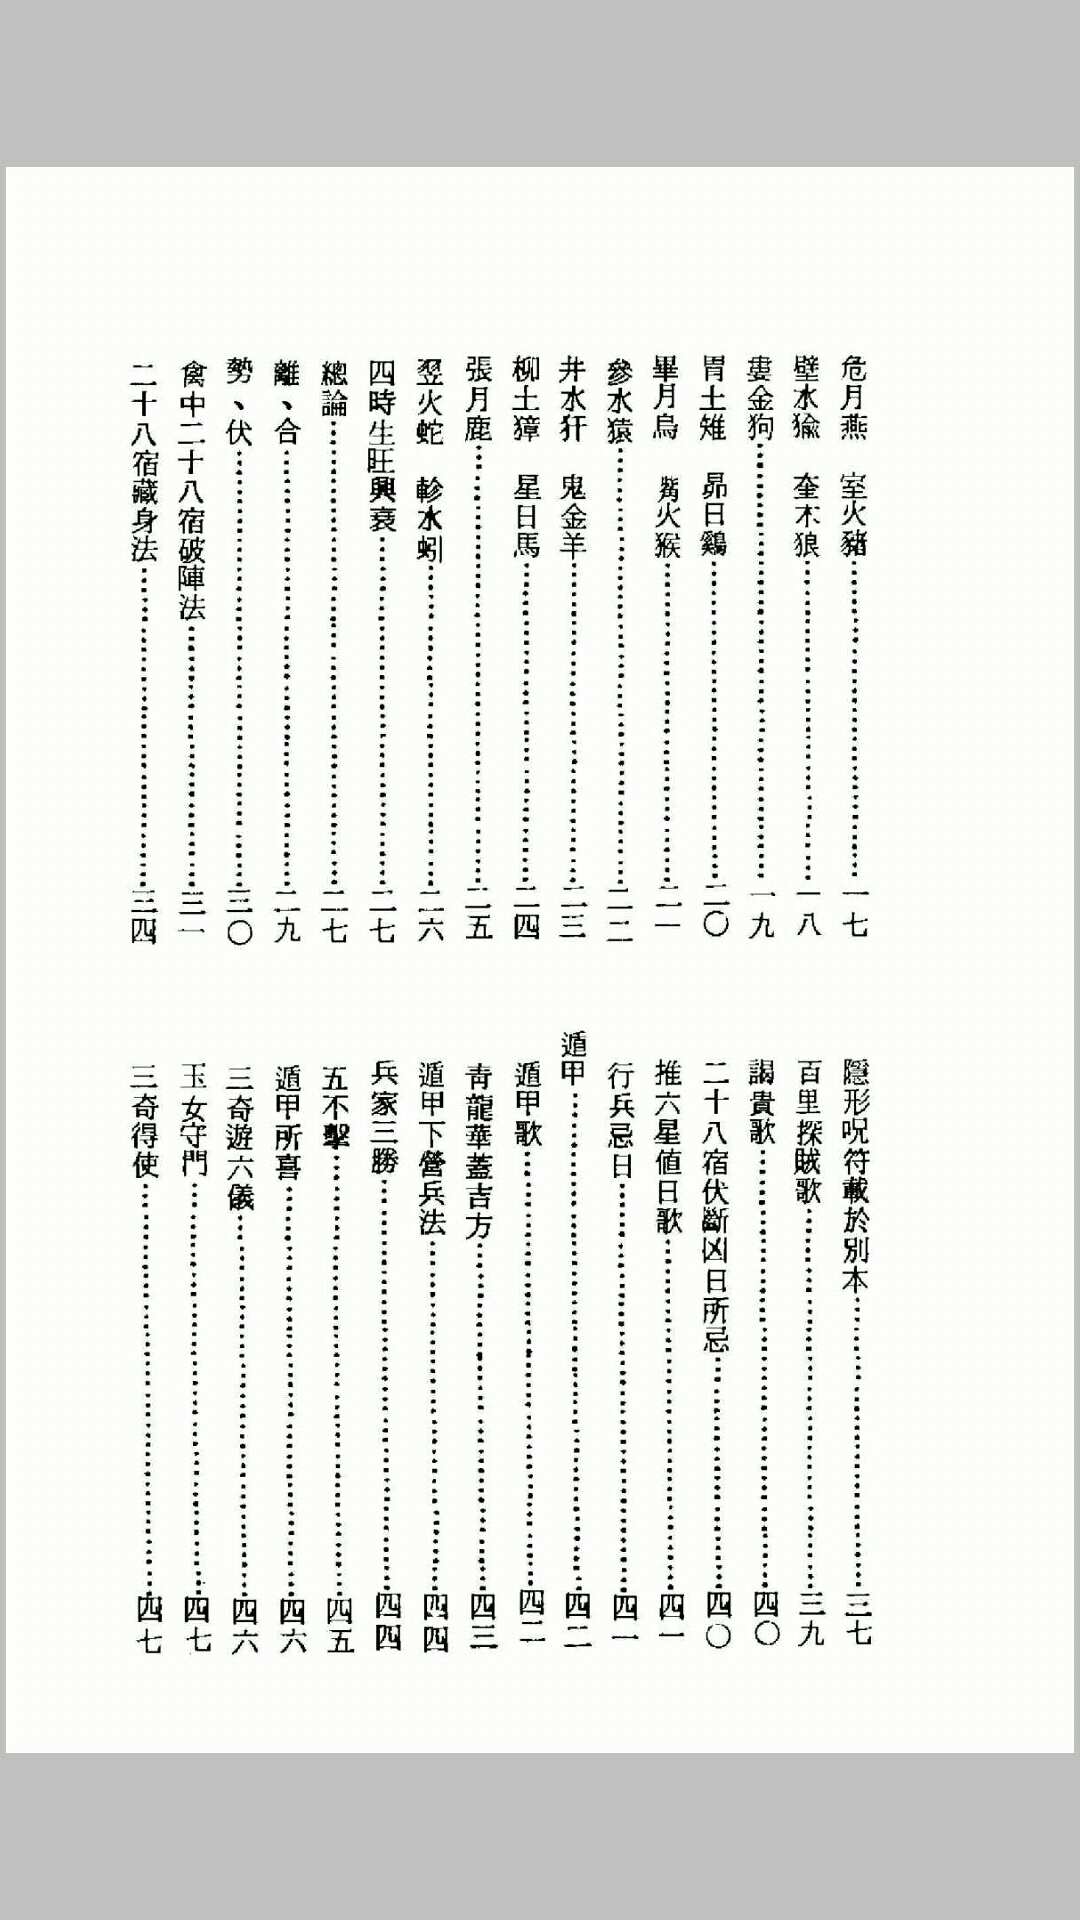 危月燕　室火豬………一七
壁水㺄　奎木狼………一八
婁金狗………一九
胃土雉　昴日鷄………二〇
畢月烏　觜火猴………二一
參水猿………二二
井水犴　鬼金羊………二三
柳土獐　星日馬………二四
張月鹿………二五
翌火蛇　軫水蚓………二六
四時生旺興衰………二七
總論………二七
離、合………二九
勢、伏………三〇
禽中二十八宿破陣法………三一
二十八宿藏身法………三四
隱形呪符載於別本………三七
百里探賊歌………三九
謁貴歌………四〇
二十八宿伏斷凶日所忌………四〇
推六星値日歌………四一
行兵忌日………四一
遁甲………四二
遁甲歌………四二
靑龍華蓋吉方………四三
遁甲下營兵法………四四
兵家三勝………四四
五不擊………四五
遁甲所喜………四六
三奇遊六儀………四六
玉女守門………四七
三奇得使………四七